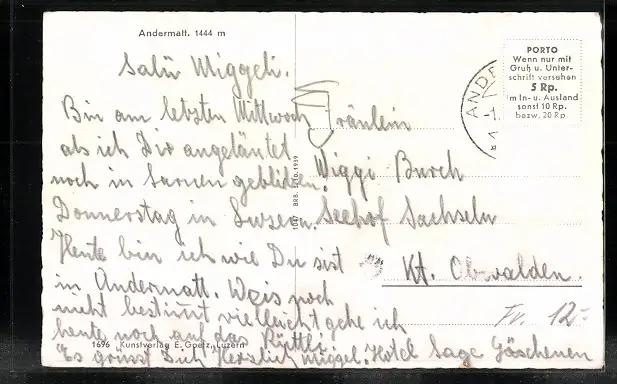 Andermatt. 1444 m
Salü Miggeli.
Bin am letzten Mittwoch
als ich Dir angeläutet
noch in Sarnen geblieben.
Donnerstag in Luzern.
Heute bin ich wie Du sist
in Andermatt. Weis noch
nicht bestimt vielleicht gehe ich
heute noch auf das Rüttli.
Es grüsst Dich Herzlich Müggel. Hotel Sage Göschenen
1696 Kunstverlag E. Goetz, Luzern
BRB. 3.10.1939
PORTO
Wenn nur mit
Gruß u. Unter-
schrift versehen
5 Rp.
im In- u. Ausland
sonst 10 Rp.
bezw. 20 Rp.
ANDE
Fräulein
Wiggi Burch
Seehof Sachseln
Kt. Obwalden.
Fr. 12.-